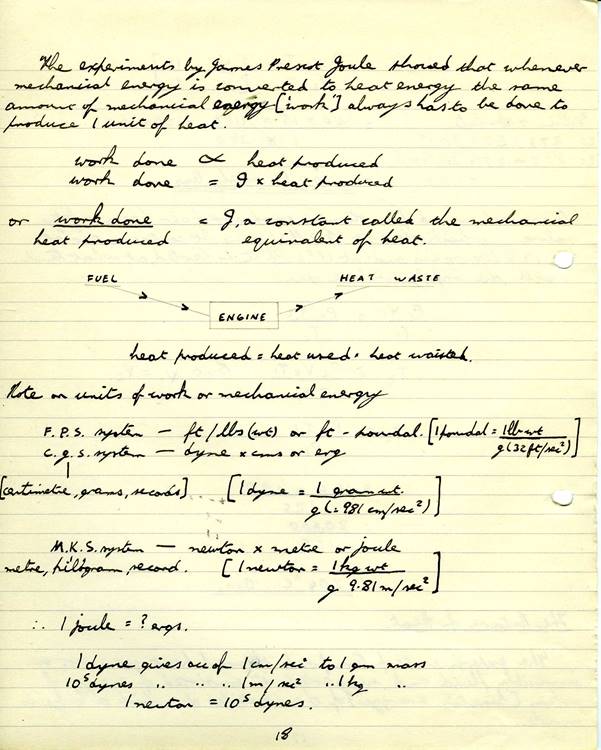 The experiments by James Prescot Joule showed that whenever
mechanical energy is converted to heat energy the same
amount of mechanical energy [‘work’] always has to be done to
produce 1 unit of heat.
work done ∝ heat produced
work done = J × heat produced
or work done = J, a constant called the mechanical
heat produced equivalent of heat.
FUEL HEAT WASTE
ENGINE
heat produced = heat used + heat waisted.
Note on units of work or mechanical energy
F.P.S. system — ft/lbs (wt) or ft - poundal. [1 poundal = 1 lb wt
g (32 ft/sec²)]
C.g.S. system — dyne × cms or erg
[centimetre, grams, seconds] [1 dyne = 1 gram wt.
g (= 981 cm/sec²)]
M.K.S. system — newton × metre or joule
metre, kilogram, second. [1 newton = 1 kg wt
g 9.81 m/sec²]
∴ 1 joule = ? ergs.
1 dyne gives acc of 1 cm/sec² to 1 gm mass
10⁵ dynes " " " 1 m/sec² " 1 kg "
1 newton = 10⁵ dynes.
18